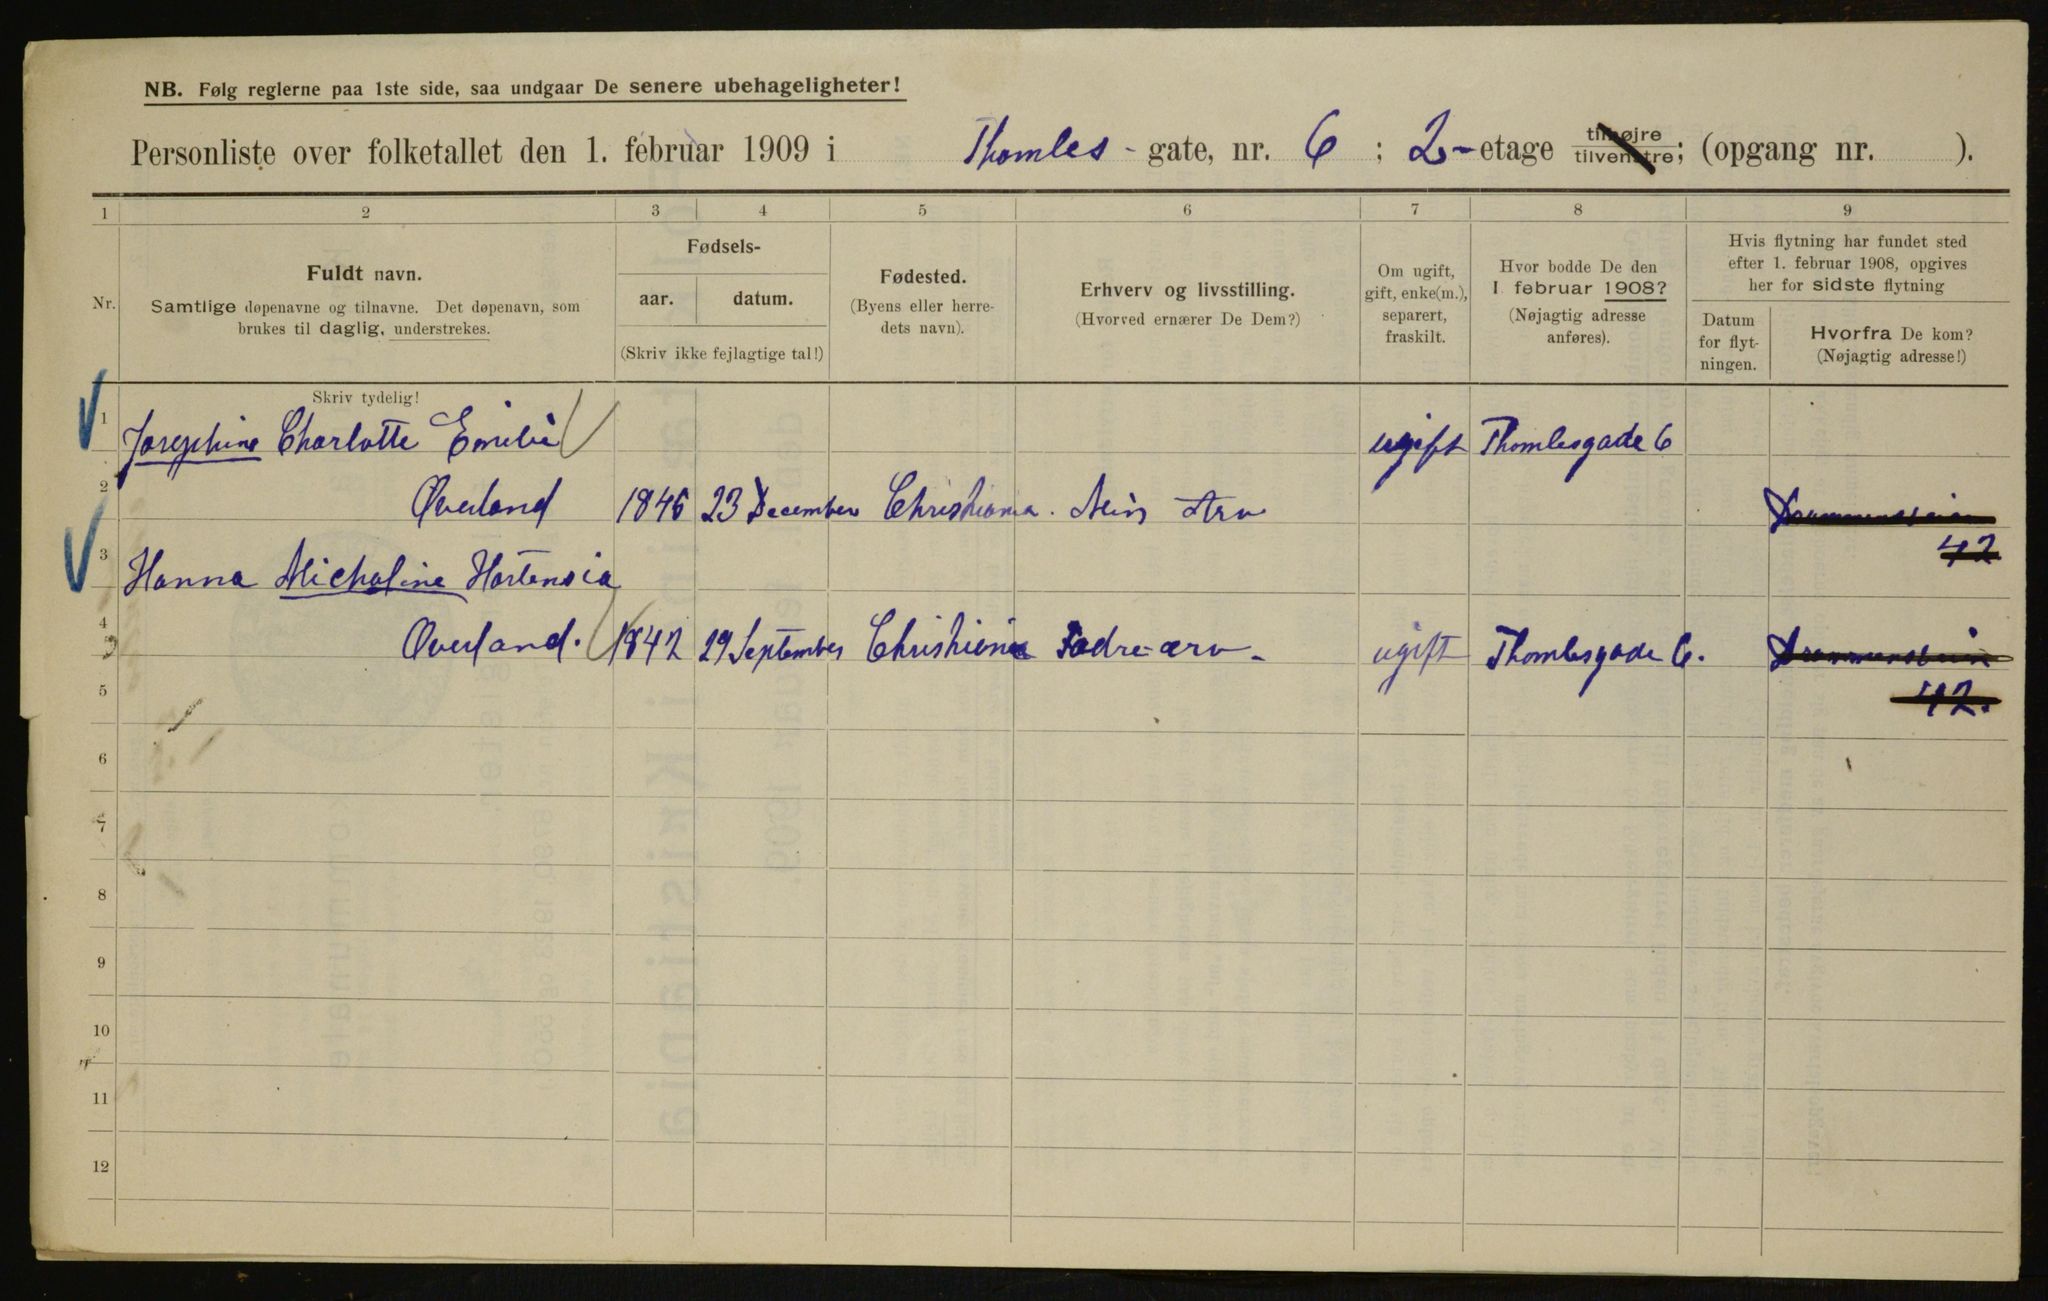 NB. Følg reglerne paa 1ste side, saa undgaar De senere ubehageligheter!
Personliste over folketallet den 1. februar 1909 i Thomles - gate, nr. 6 ; 2 - etage tilhøjre tilvenstre; (opgang nr. ).
1 2 3 4 5 6 7 8 9
Nr.
Fuldt navn.
Samtlige døpenavne og tilnavne. Det døpenavn, som
brukes til daglig, understrekes.
Fødsels-
aar. datum.
(Skriv ikke fejlagtige tal!)
Fødested.
(Byens eller herre-
dets navn).
Erhverv og livsstilling.
(Hvorved ernærer De Dem?)
Om ugift,
gift, enke(m.),
separert,
fraskilt.
Hvor bodde De den
1. februar 1908?
(Nøjagtig adresse
anføres).
Hvis flytning har fundet sted
efter 1. februar 1908, opgives
her for sidste flytning
Datum
for flyt-
ningen.
Hvorfra De kom?
(Nøjagtig adresse!)
Skriv tydelig!
1 Josephine Charlotte Emilie ugift Thomlesgade 6
2 Øverland 1846 23 December Christiania. Min Arv Drammensveien
42
3 Hanna Micholine Hortensia
4 Øverland. 1842 29 September Christiania Fadre-arv - ugift Thomlesgade 6. Drammensveien
5 42.
6
7
8
9
10
11
12